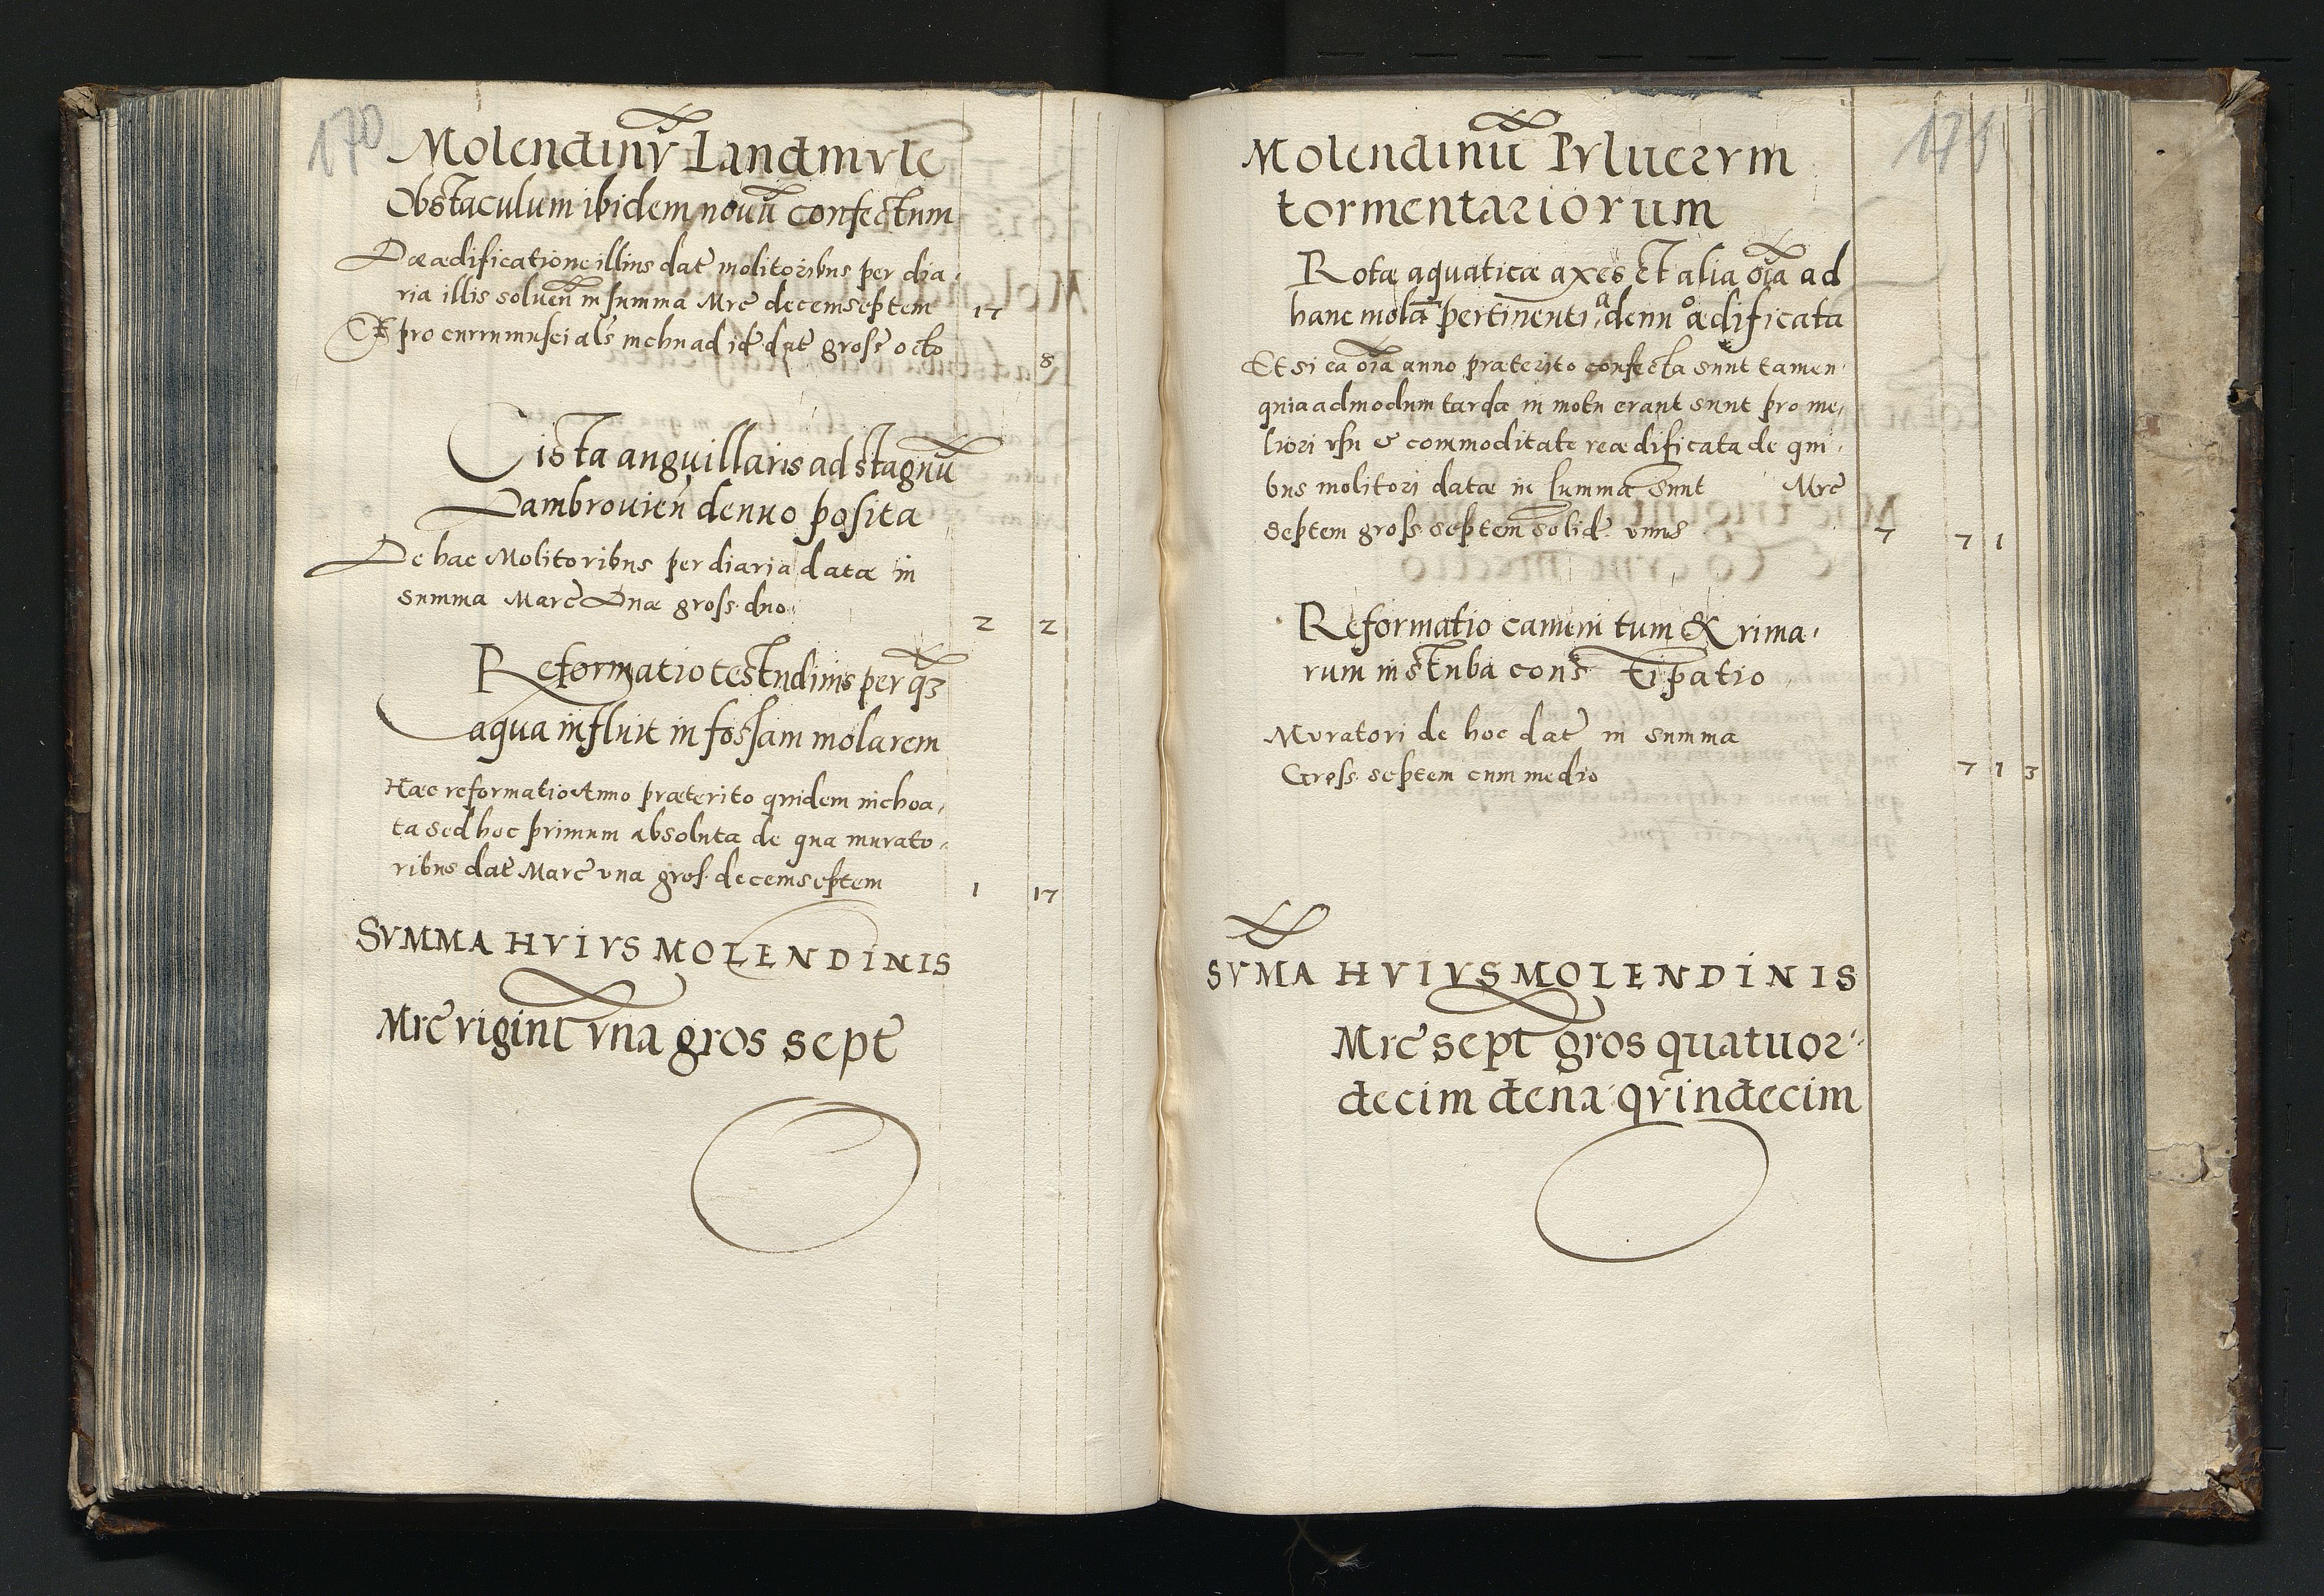 170
Molendinv̄ Landmvle
Obstaculum ibidem nouū confectum
De ædificatione illius dat̄ molitoribus per dia,
ria illis soluen̄ in summa Mrc̄ decemseptem 17
Et pro curru musci als̄ mchu ad id̄ dat̄ gross̄ octo 8
Cista anguillaris ad stagnū
Dambrouien̄ denuo posita
De hac Molitoribus per diaria datæ in
summa Marc̄ Duæ gross. duo. 2 2
Reformatio testudinis per q̄ꝫ
aqua influit in fossam molarem
Hæc reformatio Anno præterito quidem inchoa,
ta sed hoc primum absoluta de qua murato,
ribus dat̄ Marc̄ vna gros. decemseptem 1 17
SVMMA HVIVS MOLENDINIS
Mrc̄ vigint vna gros sept̄e
171
Molendinū Pvlvervm
tormentariorum
Rotæ aquaticæ axes et alia oīa ad
hanc molā pertinentiᵃ, denuᵒ ædificata
Et si ea oīa anno præterito confecta sunt tamen
quia admodum tarda in motu erant sunt pro me,
liori vsu & commoditate reædificata de qui,
bus molitori datæ in summa sunt Mrc̄
septem gross. septem solid. vnus 7 7 1
Reformatio camini tum & rima,
rum in stuba cons tipatio
Mvratori de hoc dat̄ in summa
Gross. septem cum medio 7 1 3
SVMA HVIVS MOLENDINIS
Mrc̄ sept gros quatuor
decim dena qvindecim